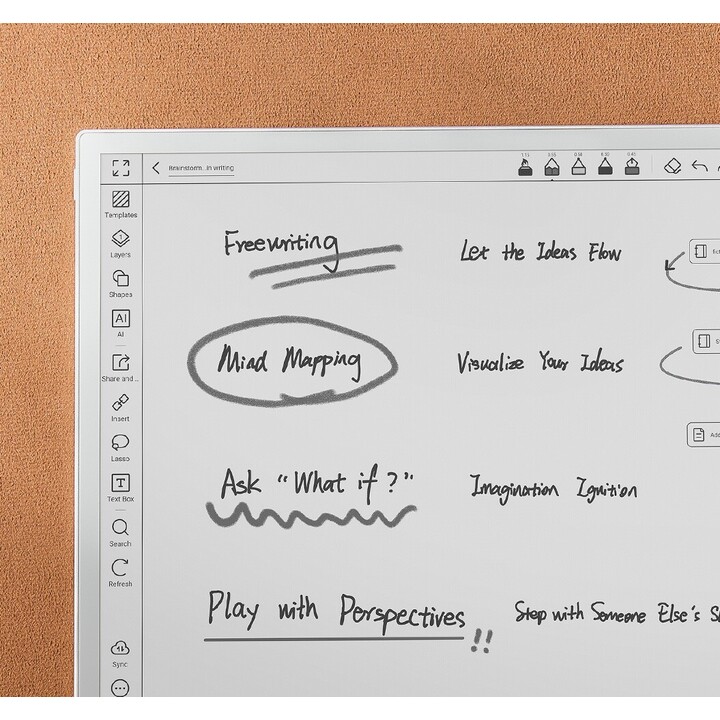 Brainstorm...in writing
1.15 0.55 0.60 6.30 0.45
Templates
Layers
Shapes
AI
AI
Share and ...
Insert
Lasso
T
Text Box
Search
Refresh
Sync
Freewriting
Let the Ideas Flow
Mind Mapping
Visualize Your Ideas
Ask "What if?"
Imagination Ignition
Play with Perspectives!!
Step with Someone Else's